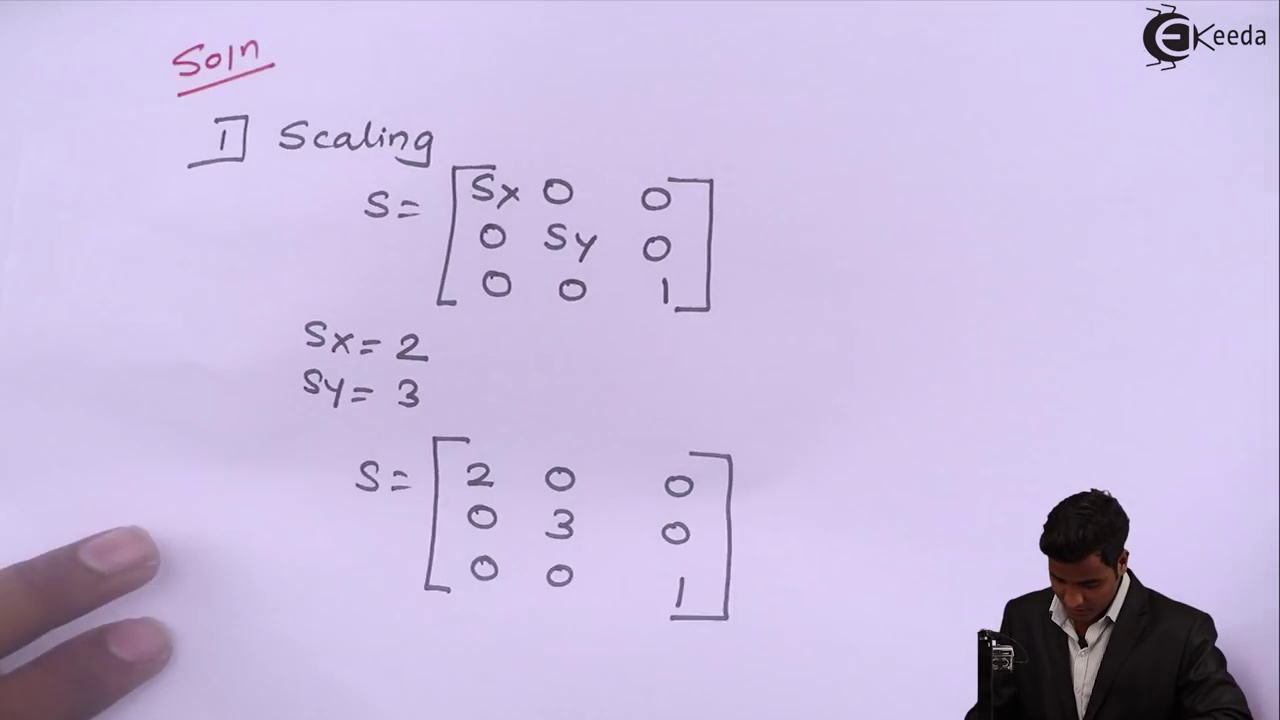 Keeda
Soln
1] Scaling
S= [Sx 0 0
0 Sy 0
0 0 1]
Sx= 2
Sy= 3
S= [2 0 0
0 3 0
0 0 1]